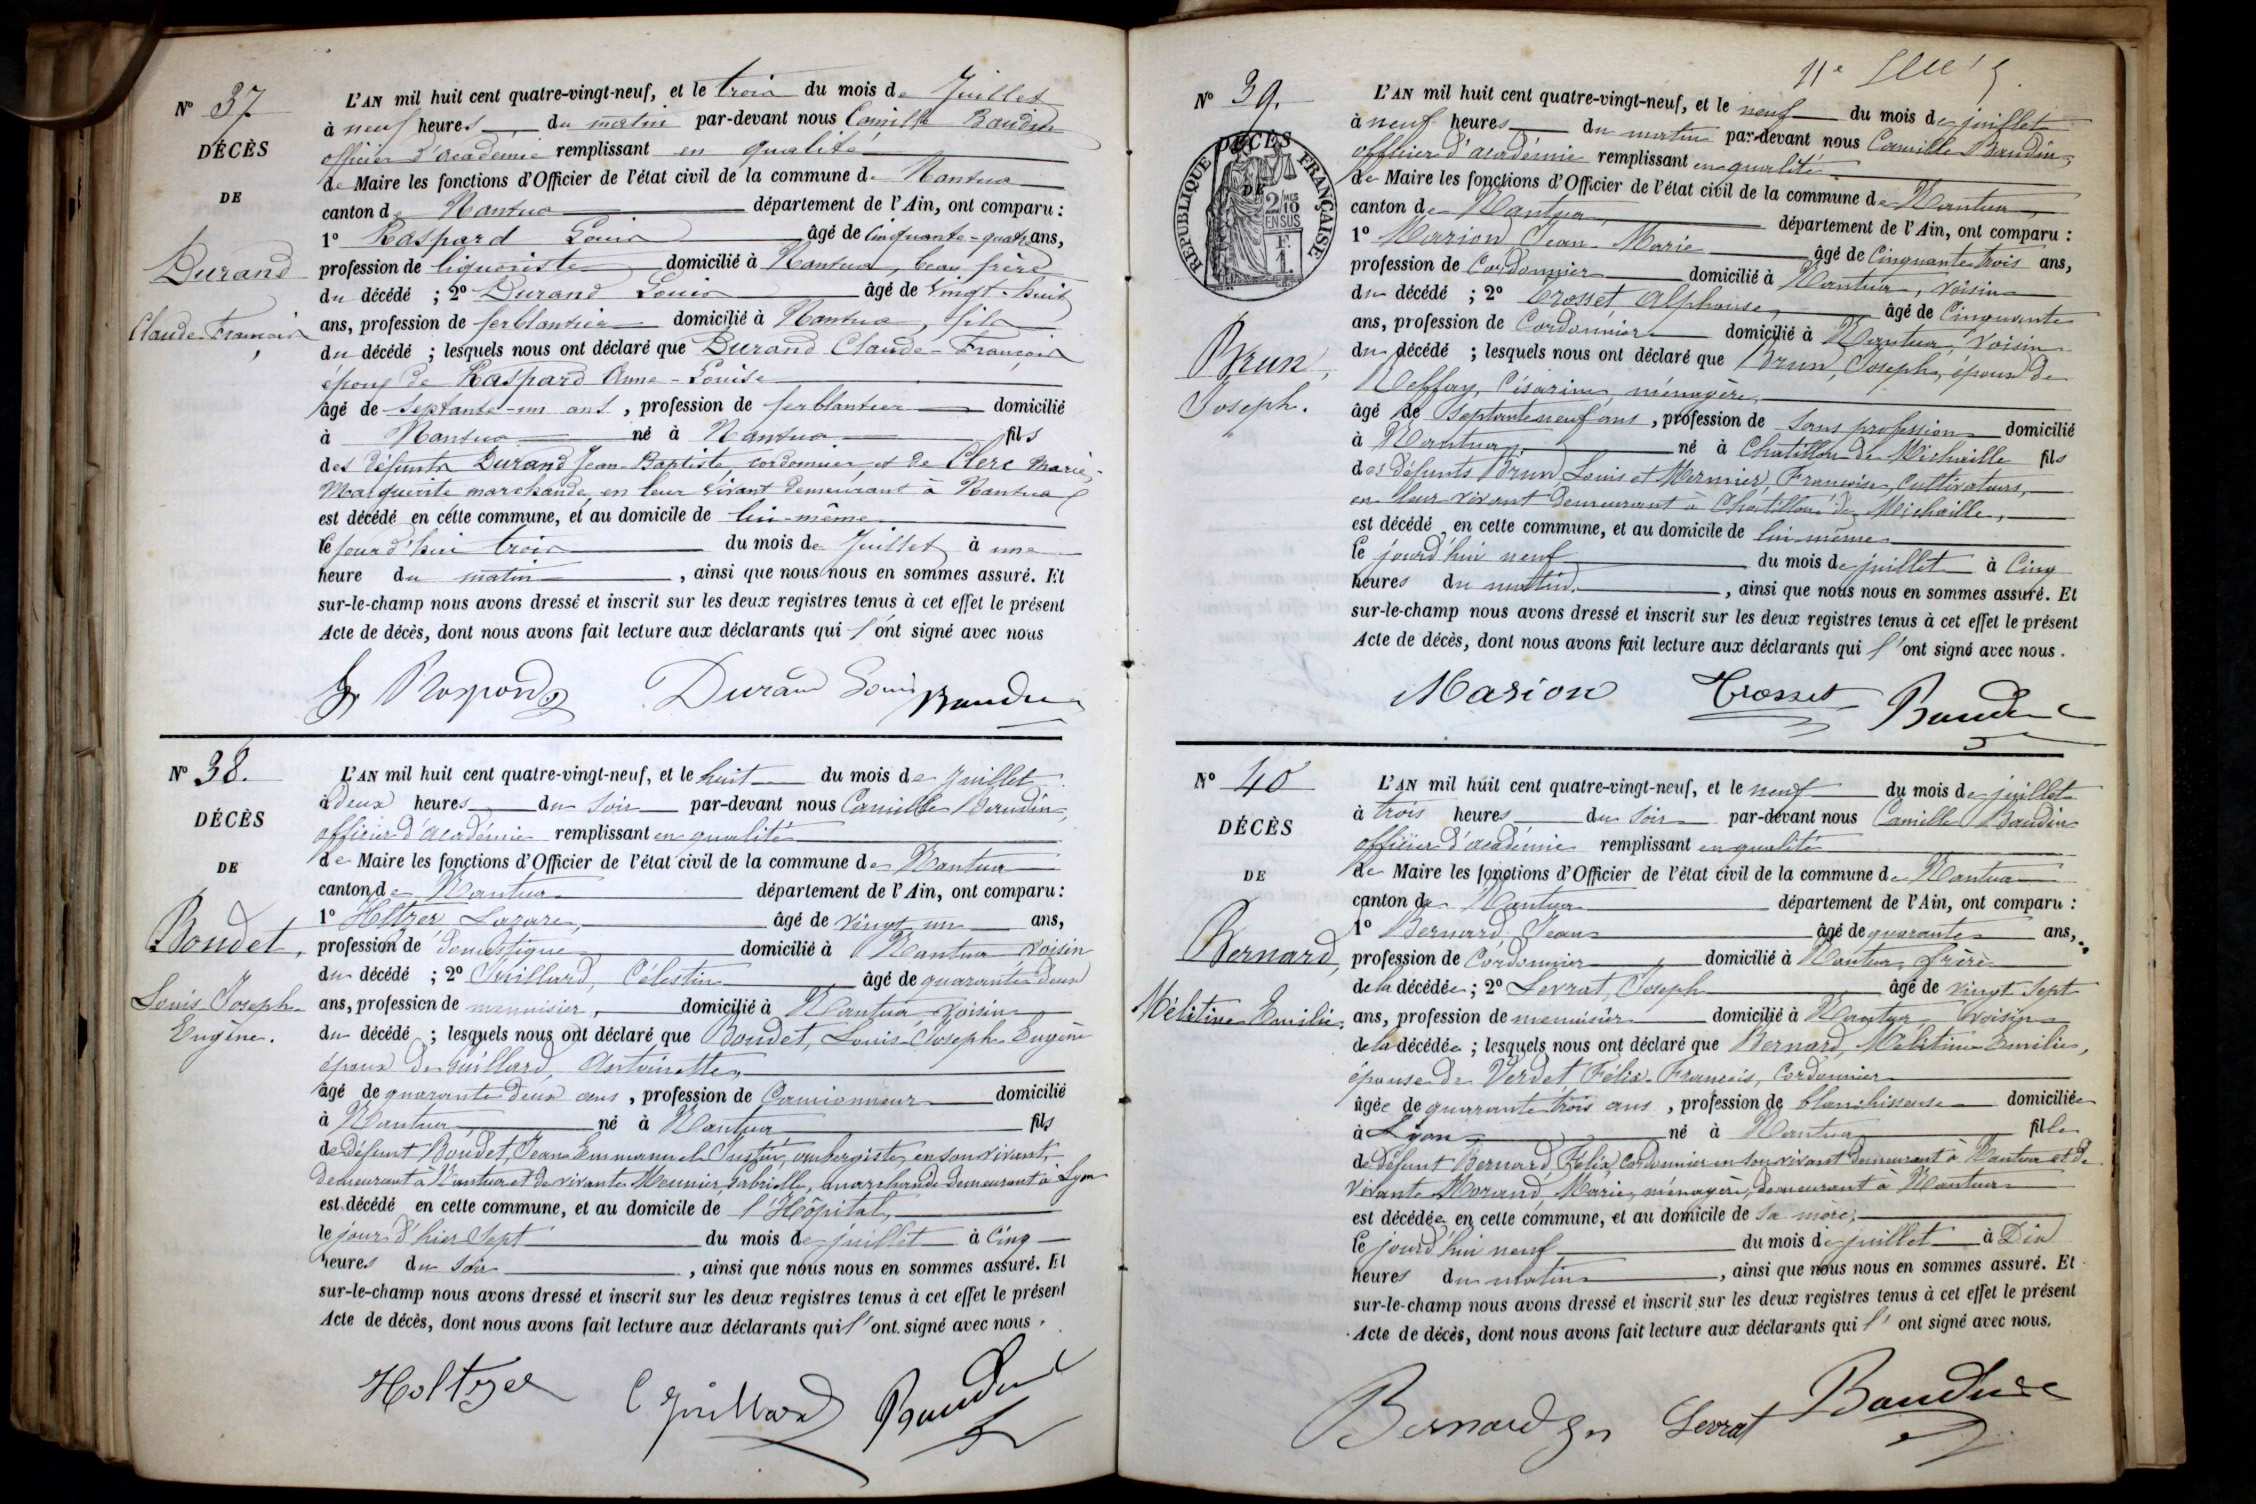 N° 37
DÉCÈS
DE
Durand
Claude-François
L'AN mil huit cent quatre-vingt-neuf, et le trois du mois de Juillet
à neuf heures du matin par-devant nous Camille Baudin
officier d'académie remplissant en qualité
de Maire les fonctions d'Officier de l'état civil de la commune de Nantua
canton de Nantua département de l'Ain, ont comparu :
1° Raspard Louis âgé de cinquante-quatre ans,
profession de liquoriste domicilié à Nantua, beau frère
du décédé ; 2° Durand Louis âgé de vingt-huit
ans, profession de ferblantier domicilié à Nantua, fils
du décédé ; lesquels nous ont déclaré que Durand Claude-François
époux de Raspard Anne-Louise
âgé de septante-un ans, profession de ferblantier domicilié
à Nantua né à Nantua fils
des défunts Durand Jean-Baptiste, cordonnier et de Clerc Marie-
Marguerite marchande, en leur vivant demeurant à Nantua
est décédé en cette commune, et au domicile de lui-même
le jourd'hui trois du mois de Juillet à une
heure du matin, ainsi que nous nous en sommes assuré. Et
sur-le-champ nous avons dressé et inscrit sur les deux registres tenus à cet effet le présent
Acte de décès, dont nous avons fait lecture aux déclarants qui l'ont signé avec nous
Durand Louis Baudin
N° 38.
DÉCÈS
DE
Boudet,
Louis-Joseph-
Eugène.
L'AN mil huit cent quatre-vingt-neuf, et le huit du mois de juillet
à deux heures du soir par-devant nous Camille Baudin,
officier d'académie remplissant en qualité
de Maire les fonctions d'Officier de l'état civil de la commune de Nantua
canton de Nantua département de l'Ain, ont comparu :
1° Holtzer Lazare, âgé de vingt un ans,
profession de domestique domicilié à Nantua voisin
du décédé ; 2° Juillard, Célestin âgé de quarante deux
ans, profession de menuisier, domicilié à Nantua voisin
du décédé ; lesquels nous ont déclaré que Boudet, Louis-Joseph-Eugène
époux de Juillard, Antoinette,
âgé de quarante deux ans, profession de Camionneur domicilié
à Nantua né à Nantua fils
de défunt Boudet, Jean-Emmanuel-Justin, aubergiste, en son vivant,
demeurant à Nantua et de vivante Meunier, Gabrielle, marchande demeurant à Lyon
est décédé en cette commune, et au domicile de l'Hôpital,
le jour d'hier sept du mois de juillet à Cinq
heures du soir, ainsi que nous nous en sommes assuré. Et
sur-le-champ nous avons dressé et inscrit sur les deux registres tenus à cet effet le présent
Acte de décès, dont nous avons fait lecture aux déclarants qui l'ont signé avec nous.
Holtzer C Juillard Baudin
N° 39.
DÉCÈS
DE
RÉPUBLIQUE FRANÇAISE
2/10 EN SUS
Brun,
Joseph.
L'AN mil huit cent quatre-vingt-neuf, et le neuf du mois de juillet
à neuf heures du matin par-devant nous Camille Baudin,
officier d'académie remplissant en qualité
de Maire les fonctions d'Officier de l'état civil de la commune de Nantua,
canton de Nantua, département de l'Ain, ont comparu :
1° Marion Jean-Marie âgé de Cinquante trois ans,
profession de Cordonnier domicilié à Nantua, voisin
du décédé ; 2° Crosset Alphonse, âgé de Cinquante
ans, profession de Cordonnier domicilié à Nantua, voisin
du décédé ; lesquels nous ont déclaré que Brun, Joseph, époux de
Césarine, ménagère,
âgé de septante neuf ans, profession de sans profession domicilié
à Nantua, né à Chatillon de Michaille fils
des défunts Brun, Louis et Mermier, Françoise, Cultivateurs,
en leur vivant demeurant à Chatillon de Michaille,
est décédé en cette commune, et au domicile de lui-même
le jourd'hui neuf du mois de juillet à Cinq
heures du matin, ainsi que nous nous en sommes assuré. Et
sur-le-champ nous avons dressé et inscrit sur les deux registres tenus à cet effet le présent
Acte de décès, dont nous avons fait lecture aux déclarants qui l'ont signé avec nous.
Marion Crosset Baudin
N° 40
DÉCÈS
DE
Bernard,
Mélitine Emilie,
L'AN mil huit cent quatre-vingt-neuf, et le neuf du mois de juillet
à trois heures du soir par-devant nous Camille Baudin
officier d'académie remplissant en qualité
de Maire les fonctions d'Officier de l'état civil de la commune de Nantua
canton de Nantua département de l'Ain, ont comparu :
1° Bernard, Jean âgé de quarante ans,
profession de Cordonnier domicilié à Nantua, frère
de la décédée ; 2° Levrat, Joseph âgé de vingt sept
ans, profession de menuisier domicilié à Nantua voisin
de la décédée ; lesquels nous ont déclaré que Bernard, Mélitine Emilie,
épouse de Verdet, Félix-François, Cordonnier
âgée de quarante trois ans, profession de blanchisseuse domiciliée
à Lyon né à Nantua fille
de défunt Bernard, Félix, cordonnier en son vivant demeurant à Nantua et de
vivante Morand, Marie, ménagère, demeurant à Nantua
est décédée en cette commune, et au domicile de sa mère,
le jourd'hui neuf du mois de juillet à Dix
heures du matin, ainsi que nous nous en sommes assuré. Et
sur-le-champ nous avons dressé et inscrit sur les deux registres tenus à cet effet le présent
Acte de décès, dont nous avons fait lecture aux déclarants qui l'ont signé avec nous.
Bernard Levrat Baudin